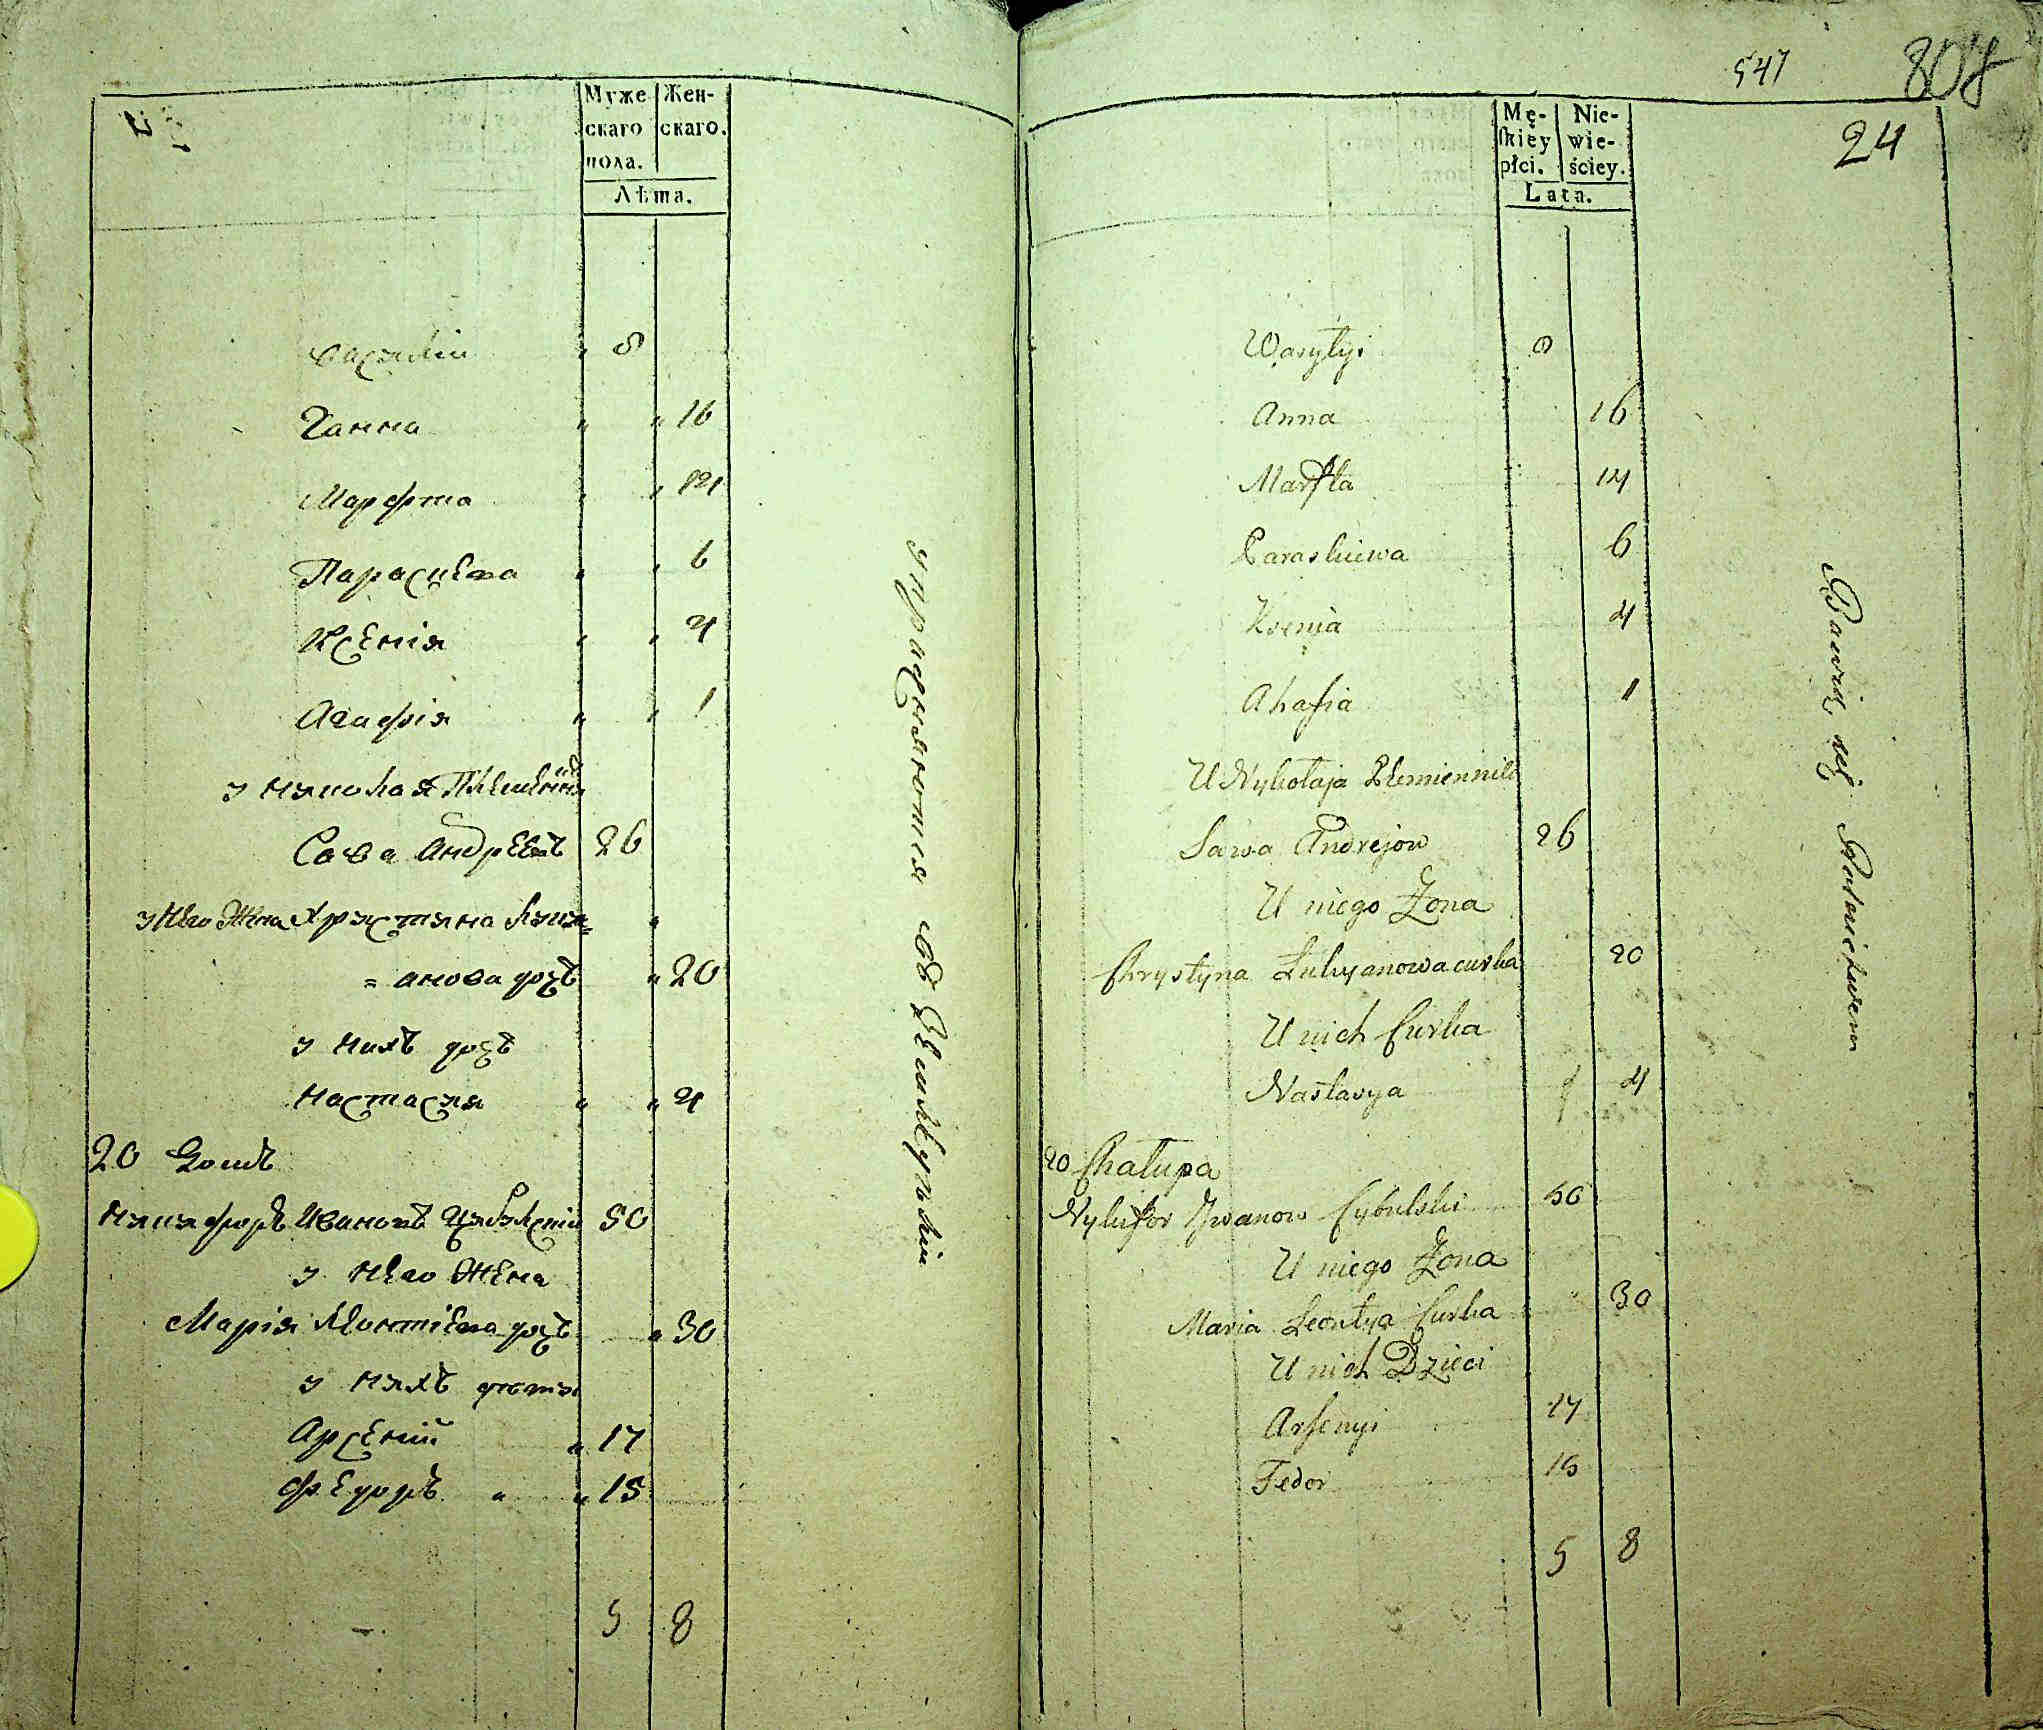 Муже
скаго
пола.
Жен-
скаго.
Лѣта.
Василій " 8
Ганна " " 16
Марфта " " 14
Параскева " " 6
Ксенія " " 4
Агафія " " 1
у Николая Племѣнникъ
Сава Андреевъ 26
у Него Жена Христина Лукя=
= анова дочь " 20
у нихъ дочь
Настасия " " 4
20 Домъ
Никифоръ Ивановъ Цибулскій 50
у Него Жена
Марія Леонтіева дочь " 30
у нихъ дети
Арсеній " 17
Федоръ " " 15
5 8
упражняются въ Земледѣлій
547
808
24
Mę-
skiey
płci.
Nie-
wie-
ściey.
Lata.
Wasylyi 8
Anna 16
Marfta 14
Paraskiewa 6
Ksenia 4
Ahafia 1
U Nykołaja Plemiennik
Sawa Andrejow 26
U niego Żona
Chrystyna Lukyanowa curka 20
U nich Curka
Nastasya 4
20 Chałupa
Nykifor Jwanow Cybulski 50
U niego Żona
Maria Leontya Curka 30
U nich Dzieci
Arsenyi 17
Fedor 15
5 8
Bawią się Rolnictwem